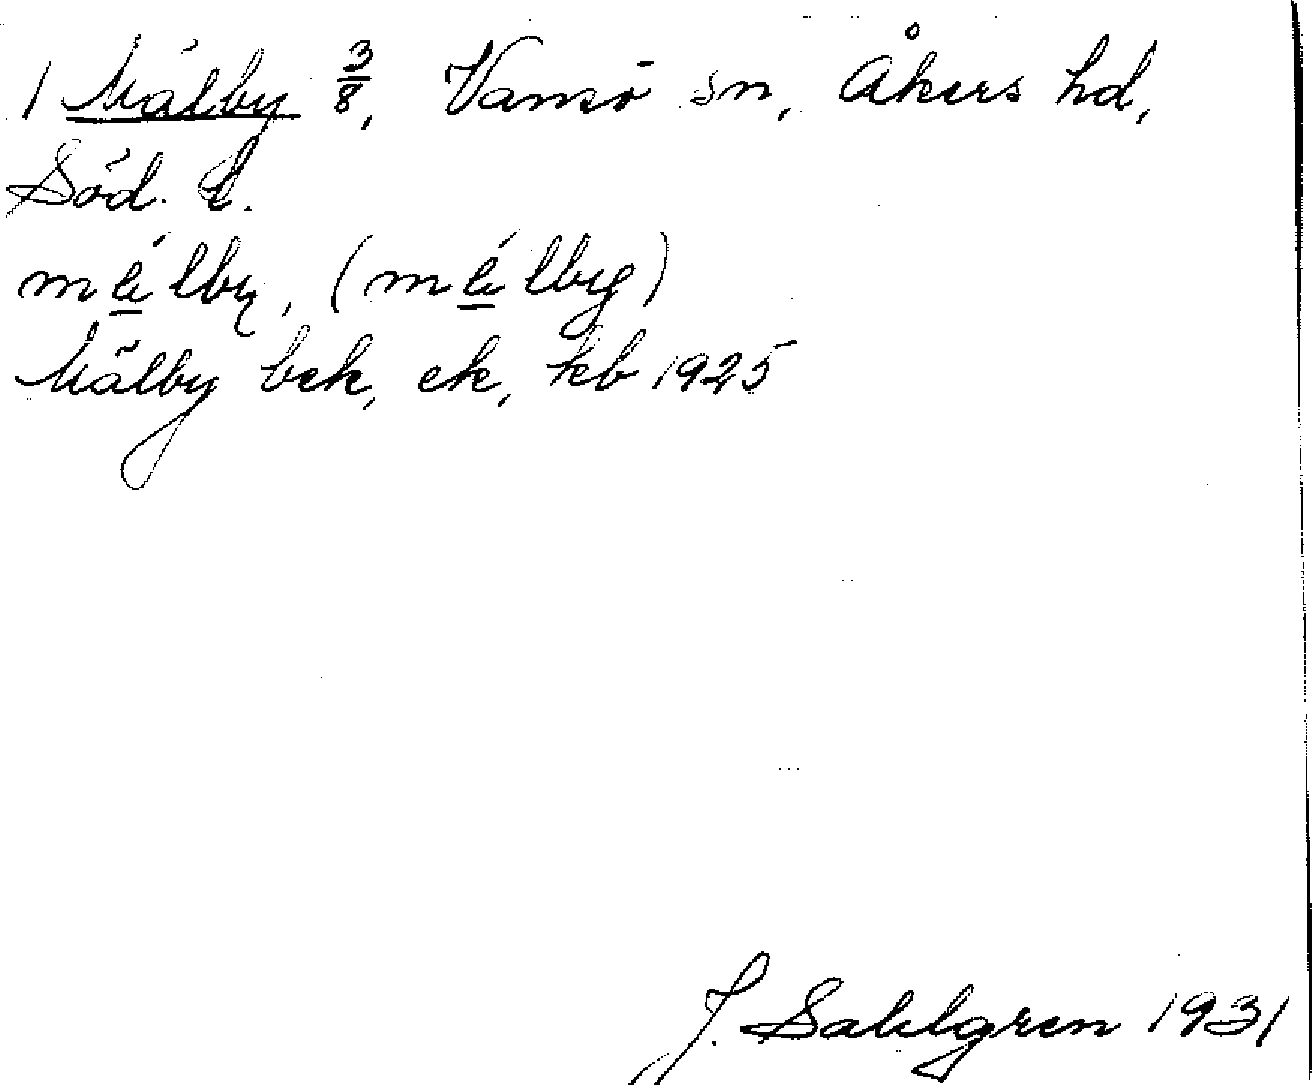 1 Mälby 3/8, Vansö sn, Åkers hd,
Söd. l.
mälby, (mälby)
Mälby bek, ek, kb 1925
J. Sahlgren 1931